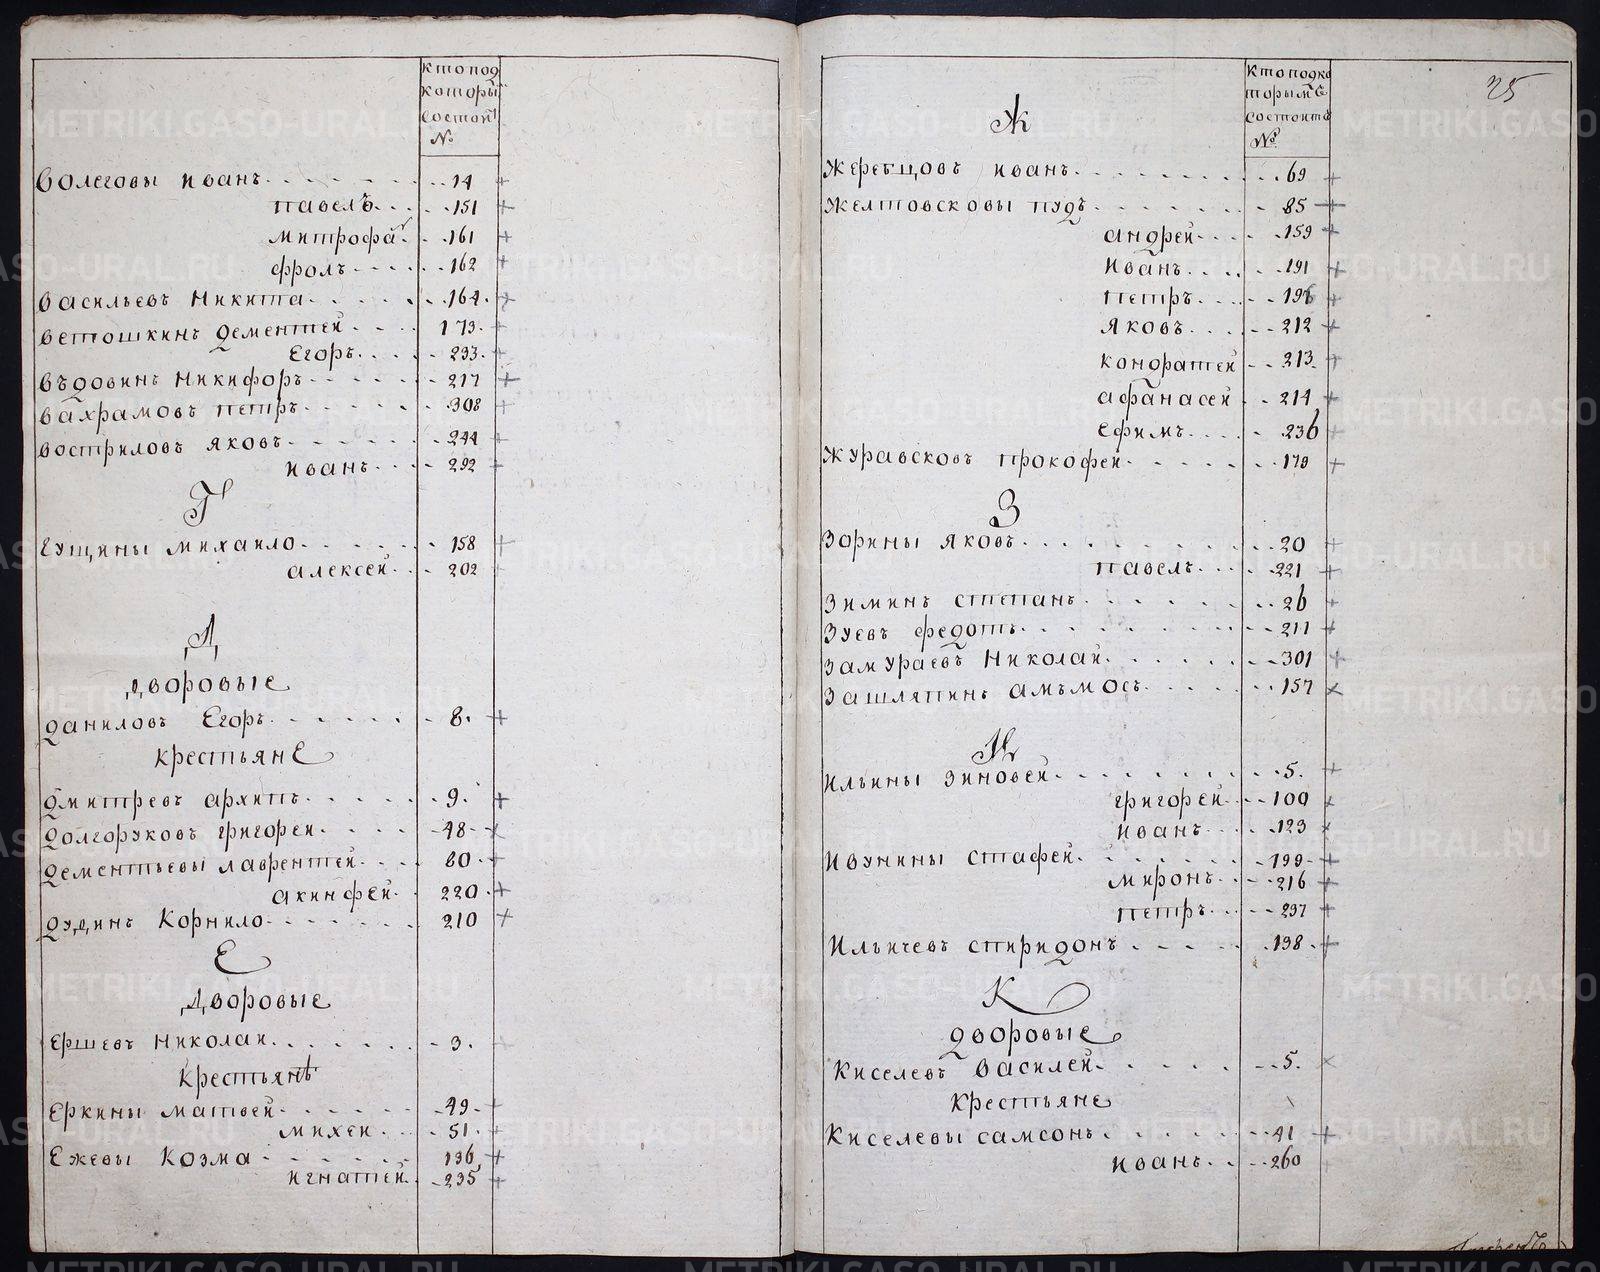 кто под
которы
состои
№
Волеговы иванъ 14
павелъ 151
митрофа 161
фролъ 162
Васильевъ Никита 164
Ветошкинъ дементей 173
Егоръ 233
Въдовинъ Никифоръ 217
Вахрамовъ петръ 308
Востриловъ яковъ 244
иванъ 292
Г
Гущины михаило 158
алексей 202
Д
дворовые
даниловъ Егоръ 8
крестьяне
дмитревъ архипъ 9
долгоруковъ григореи 48
дементьевы лаврентей 80
акинфей 220
дудинъ Корнило 210
Е
дворовые
Ершевъ Николаи 3
Крестьянъ
Еркины матвеи 49
михеи 51
Ежевы Козма 136
игнатей 235
25
кто подко
торымъ
состоитъ
№
Ж
Жеребцовъ иванъ 69
Желтовсковы пудъ 85
андрей 159
иванъ 191
петръ
яковъ 212
кондратей 213
афанасей 214
ефимъ 236
Журавсковъ прокофей 179
З
Зорины яковъ 20
павелъ 221
Зиминъ степанъ 26
Зуевъ федотъ 211
Замураевъ Николай 301
Зашляпинъ амъмосъ 157
И
Ильины зиновей 5
григорей 100
иванъ 123
Ивунины стафей 199
миронъ 216
петръ 237
Ильичевъ спиридонъ 198
К
дворовые
Киселевъ василей 5
Крестьяне
Киселевы самсонъ 41
иванъ 260
METRIKI.GASO-URAL.RU